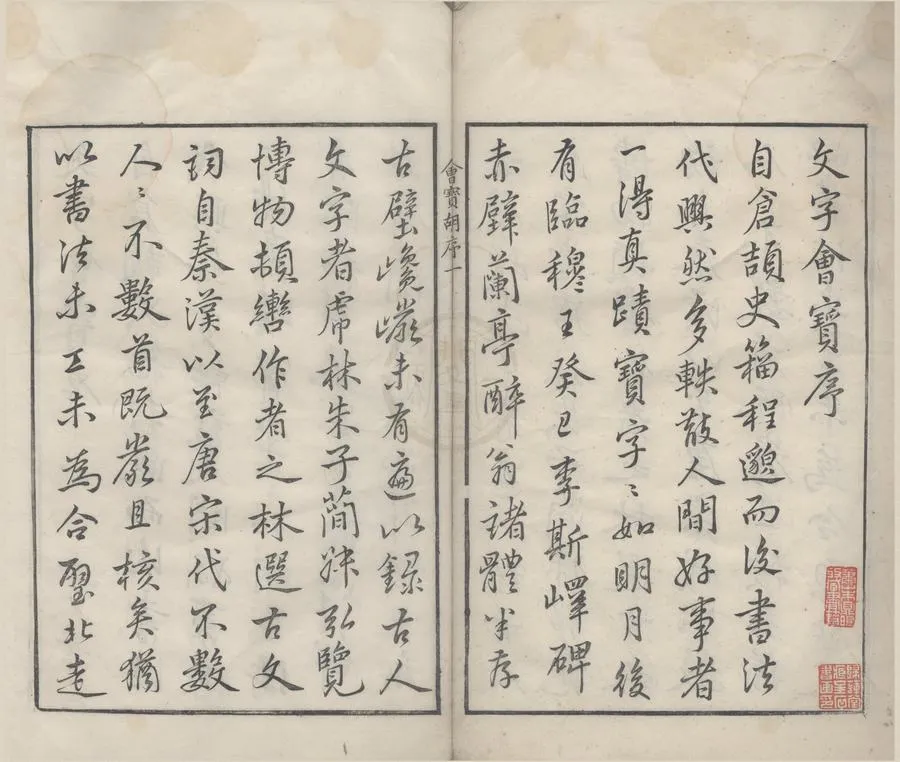 文字會寶序
自倉頡史籀程邈而後書法
代興然多軼散人間好事者
一得真蹟寶字〻如明月後
有臨穆王癸巳李斯嶧碑
赤壁蘭亭醉翁諸體半存
會寶胡序一
古壁巉巖未有以錄古人
文字者虎林朱子蕳叔弘覽
博物頓轡作者之林選古文
詞自秦漢以至唐宋代不數
人〻不數首既嚴且核矣猶
以書法未工未為合璧北走